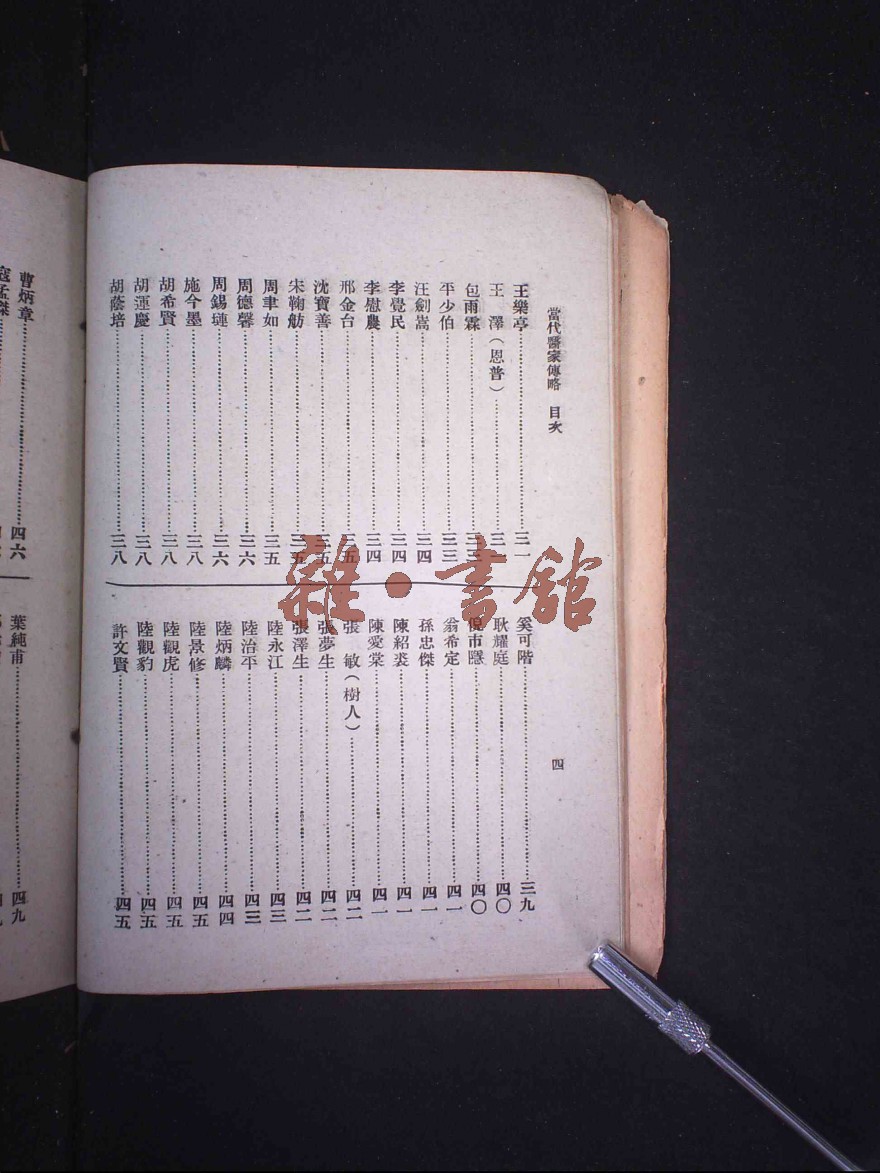 當代醫家傳略 目次
四
王樂亭 三一
王 澤(恩普) 三
包雨霖
平少伯 三三
汪劍嵩 三四
李覺民 三四
李慰農 三四
邢金台 三五
沈寶善 三五
宋鞠舫 三五
周聿如 三五
周德馨 三六
周錫璉 三六
施今墨 三八
胡希賢 三八
胡運慶 三八
胡蔭培 三八
奚可階 三九
耿耀庭 四〇
倪市隱 四〇
翁希定 四一
孫忠傑 四一
陳紹裘 四一
陳愛棠 四一
張 敏(樹人) 四二
張夢生 四二
張澤生 四二
陸永江 四三
陸治平 四三
陸炳麟 四四
陸景修 四五
陸觀虎 四五
陸觀豹 四五
許文賢 四五
曹炳章 四六
寇孟傑
葉純甫 四九
雜·書館